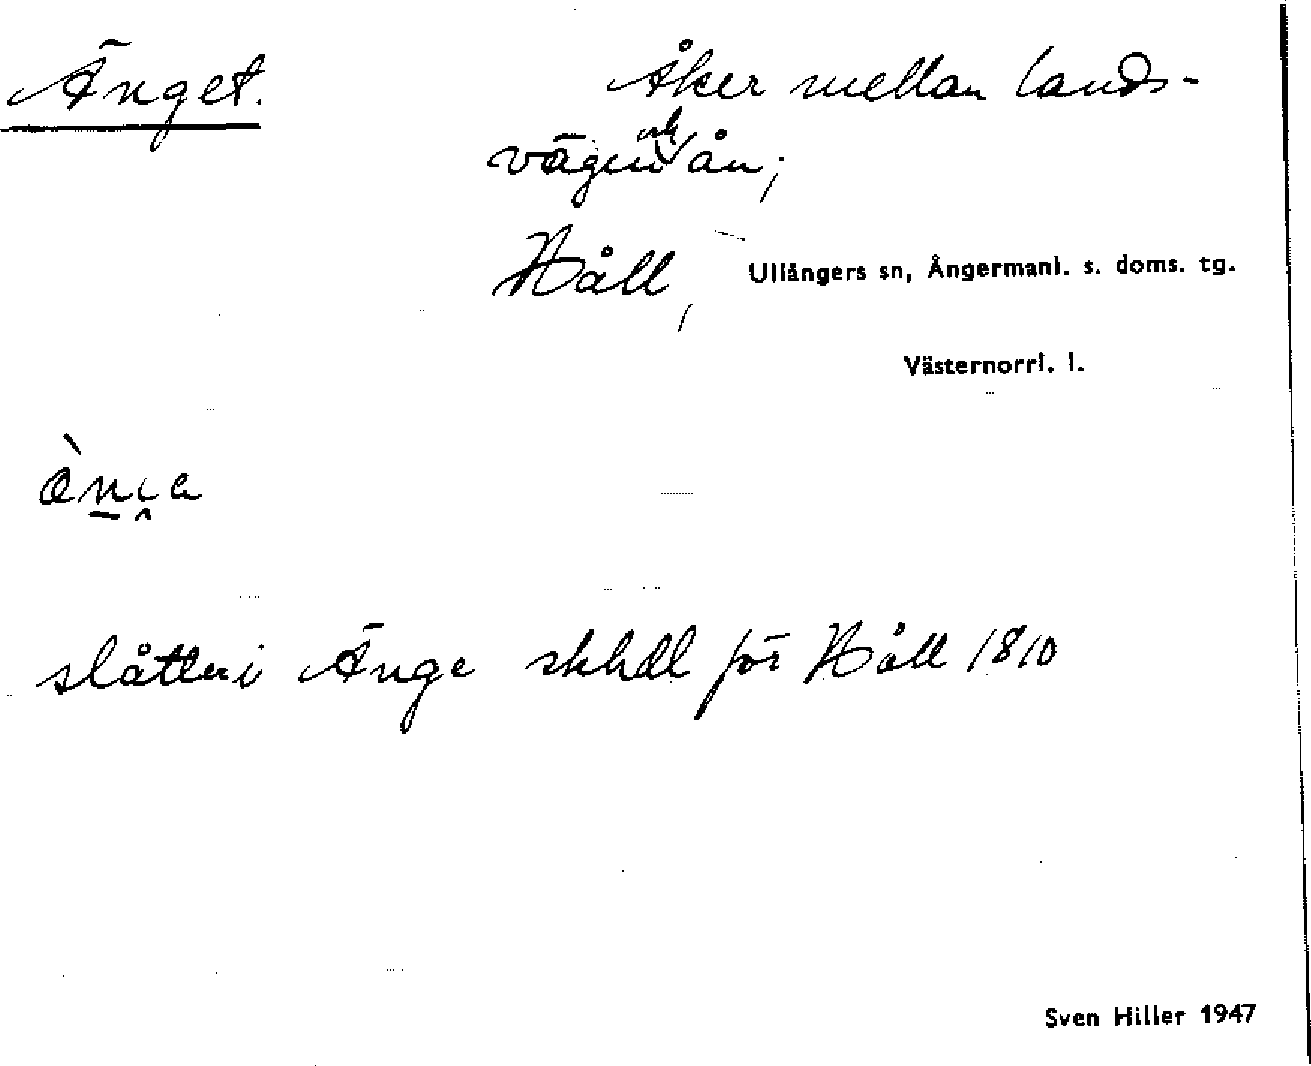 Änget. Åker mellan lands-
vägen och ån;
Håll, Ullångers sn, Ångermanl. s. doms. tg.
Västernorrl. l.
slåtter i Änge skhdl för Håll 1810
Sven Hiller 1947